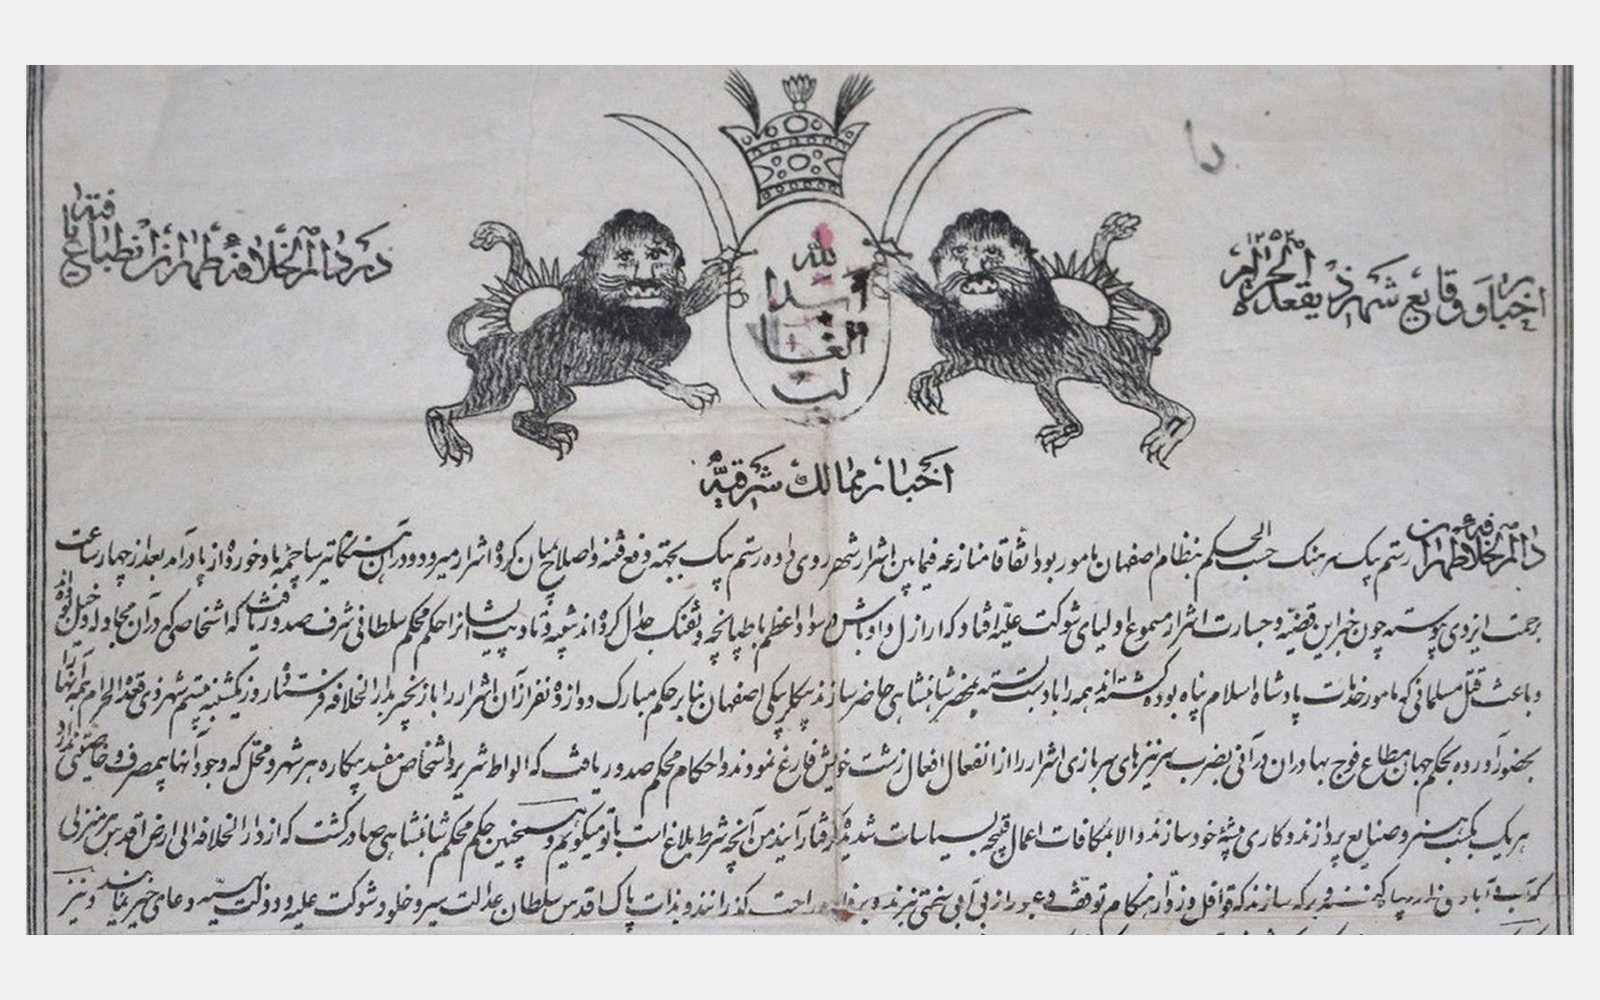 اخبار و وقایع شهر ذیقعدة الحرام ۱۲۵۳
در دار الخلافه طهران انطباع یافته
اسد الله الغالب
اخبار ممالک شرقیه
دار الخلافه طهران رستم بیک سرهنگ حسب الحکم بنظام اصفهان مامور بود اتفاقا منازعه فیمابین اشرار شهر روی داده رستم بیک بجهته رفع فتنه و اصلاح میان کروه اشرار میرود در آن هنکامه تیر ساچمه باو خورده از پا درآمد بعد از چهار ساعت
برحمت ایزدی پیوسته چون خبر این قضیه و جسارت اشرار مسموع اولیای شوکت علیه افتاد که اراذل و اوباش سواد اعظم با طپانچه و تفنک جدال کرده اند تنبیه و تادیب ایشانرا حکم محکم سلطانی شرف صدور یافت که اشخاصی که در آن مجادله دخیل بوده
و باعث قتل مسلمانی که مامور خدمات پادشاه اسلام پناه بوده کشته اند همه را بادست بسته بمحضر شاهنشاهی حاضر سازند بیکلربیکی اصفهان بنا بر حکم مبارک دوازده نفر از آن اشرار را با زنجیر بدار الخلافه فرستاد روز یکشنبه بیستم شهر ذی قعدة الحرام همه آنها را
بحضور آورده بحکم جهان مطاع فوج بهادران در آنی بضرب سر نیزهای سربازی اشرار را از انفعال افعال زشت خویش فارغ نمودند و احکام محکم صدور یافت که الواط شریر و اشخاص مفسد بیکاره هر شهر و محل که وجود آنها بیمصرف و خاصیتی ندارد
هر یک بکسب هنر و صنایع پردازند و کاری پیشه خود سازند و الا بمکافات اعمال قبیحه بسیاسات شدیده گرفتار آیند من آنچه شرط بلاغ است با تو میکویم و همچنین حکم محکم شاهنشاهی صادر کشت که از دار الخلافه الی ارض اقدس هر منزلی
که آب و آبادی ندارد بنا کنند و برکه سازند که قوافل و زوار هنکام توقف و عبور از بی آبی سختی نبرند و براحت کذرانند و بذات پاک اقدس سلطان عدالت سیر و خلود شوکت علیه و دولت بهیه دعای خیر نمایند و نیز